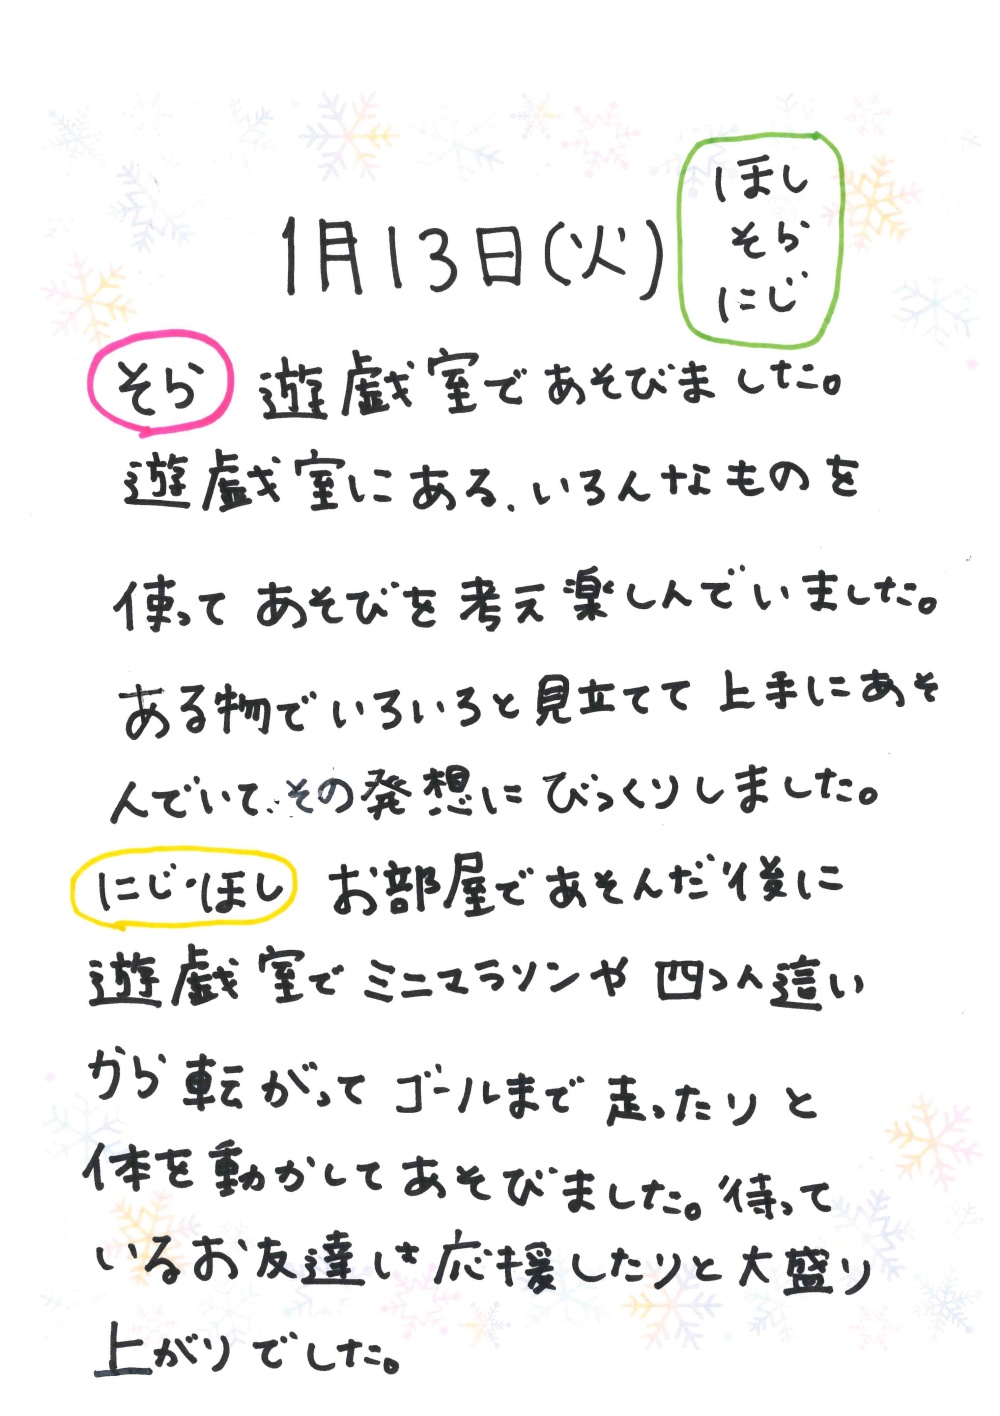 ほし
そら
にじ
1月13日(火)
そら 遊戯室であそびました。
遊戯室にある、いろんなものを
使ってあそびを考え楽しんでいました。
ある物でいろいろと見立てて上手にあそ
んでいて、その発想にびっくりしました。
にじ・ほし お部屋であそんだ後に
遊戯室でミニマラソンや四つん這い
から転がってゴールまで走ったりと
体を動かしてあそびました。待って
いるお友達は応援したりと大盛り
上がりでした。